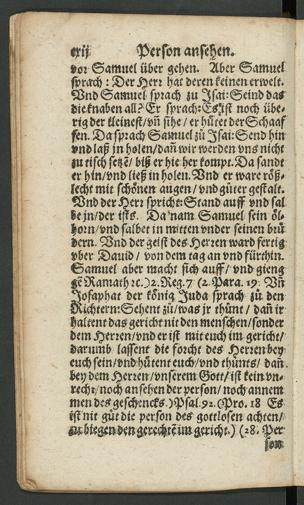 crij Person ansehen.
vor Samuel über gehen. Aber Samuel
sprach: Der Herr hat deren keinen erwelt.
Vnd Samuel sprach zu Jsai: Seind das
die knaben all? Er sprach: Es ist noch übe⸗
rig der kleinest/ vñ sihe/ er hütet der Schaaf
fen. Da sprach Samuel zů Jsai: Send hin
vnd laß in holen/ dañ wir werden vns nicht
zu tisch setzẽ/ biß er hie her kompt. Da sandt
er hin/ vnd ließ in holen. Vnd er ware röß⸗
lecht mit schönen augen/ vnd gůter gestalt.
Vnd der Herr spricht: Stand auff vnd sal
be jn/ der ists. Da nam Samuel sein öl⸗
horn/ vnd salbet in mitten vnder seinen brü
dern. Vnd der geist des Herren ward fertig
vber Dauid/ von dem tag an vnd fürthin.
Samuel aber macht sich auff/ vnd gieng
gẽ Ramath ꝛc.) 2. Reg. 7 (2. Para. 19. Vñ
Josaphat der könig Juda sprach zů den
Richtern: Sehent zů/ was jr thůnt/ dañ ir
haltent das gericht nit den menschen/ sonder
dem Herren/ vnd er ist mit euch im gericht/
darumb lassent die forcht des Herren bey
euch sein/ vnd hütent euch/ vnd thůnts/ dañ
bey dem Herren/ vnserem Gott/ ist kein vn⸗
recht/ noch ansehen der person/ noch annem
men des geschencks.) Psal. 92. (Pro. 18 Es
ist nit gůt die person des gottlosen achten/
zu biegen den gerechtẽ im gericht.) (28. Per
son